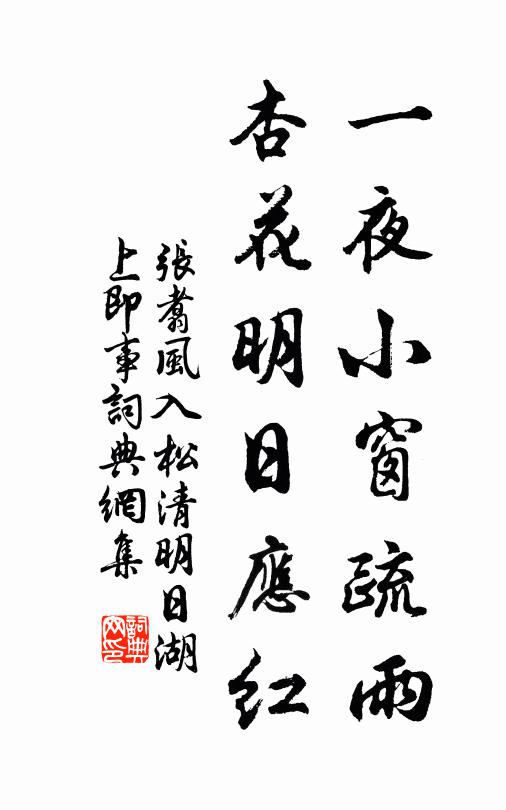 一夜小窗疏雨
杏花明日應紅
張翥風入松清明日湖
上即事詞典網集
詞典
网印